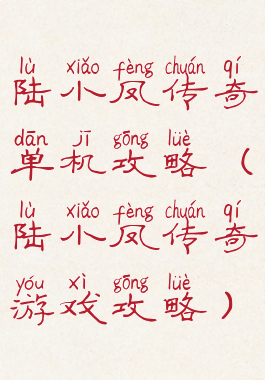 lù xiǎo fèng chuán qí
陆小凤传奇
dān jī gōng lüè
单机攻略（
lù xiǎo fèng chuán qí
陆小凤传奇
yóu xì gōng lüè
游戏攻略）